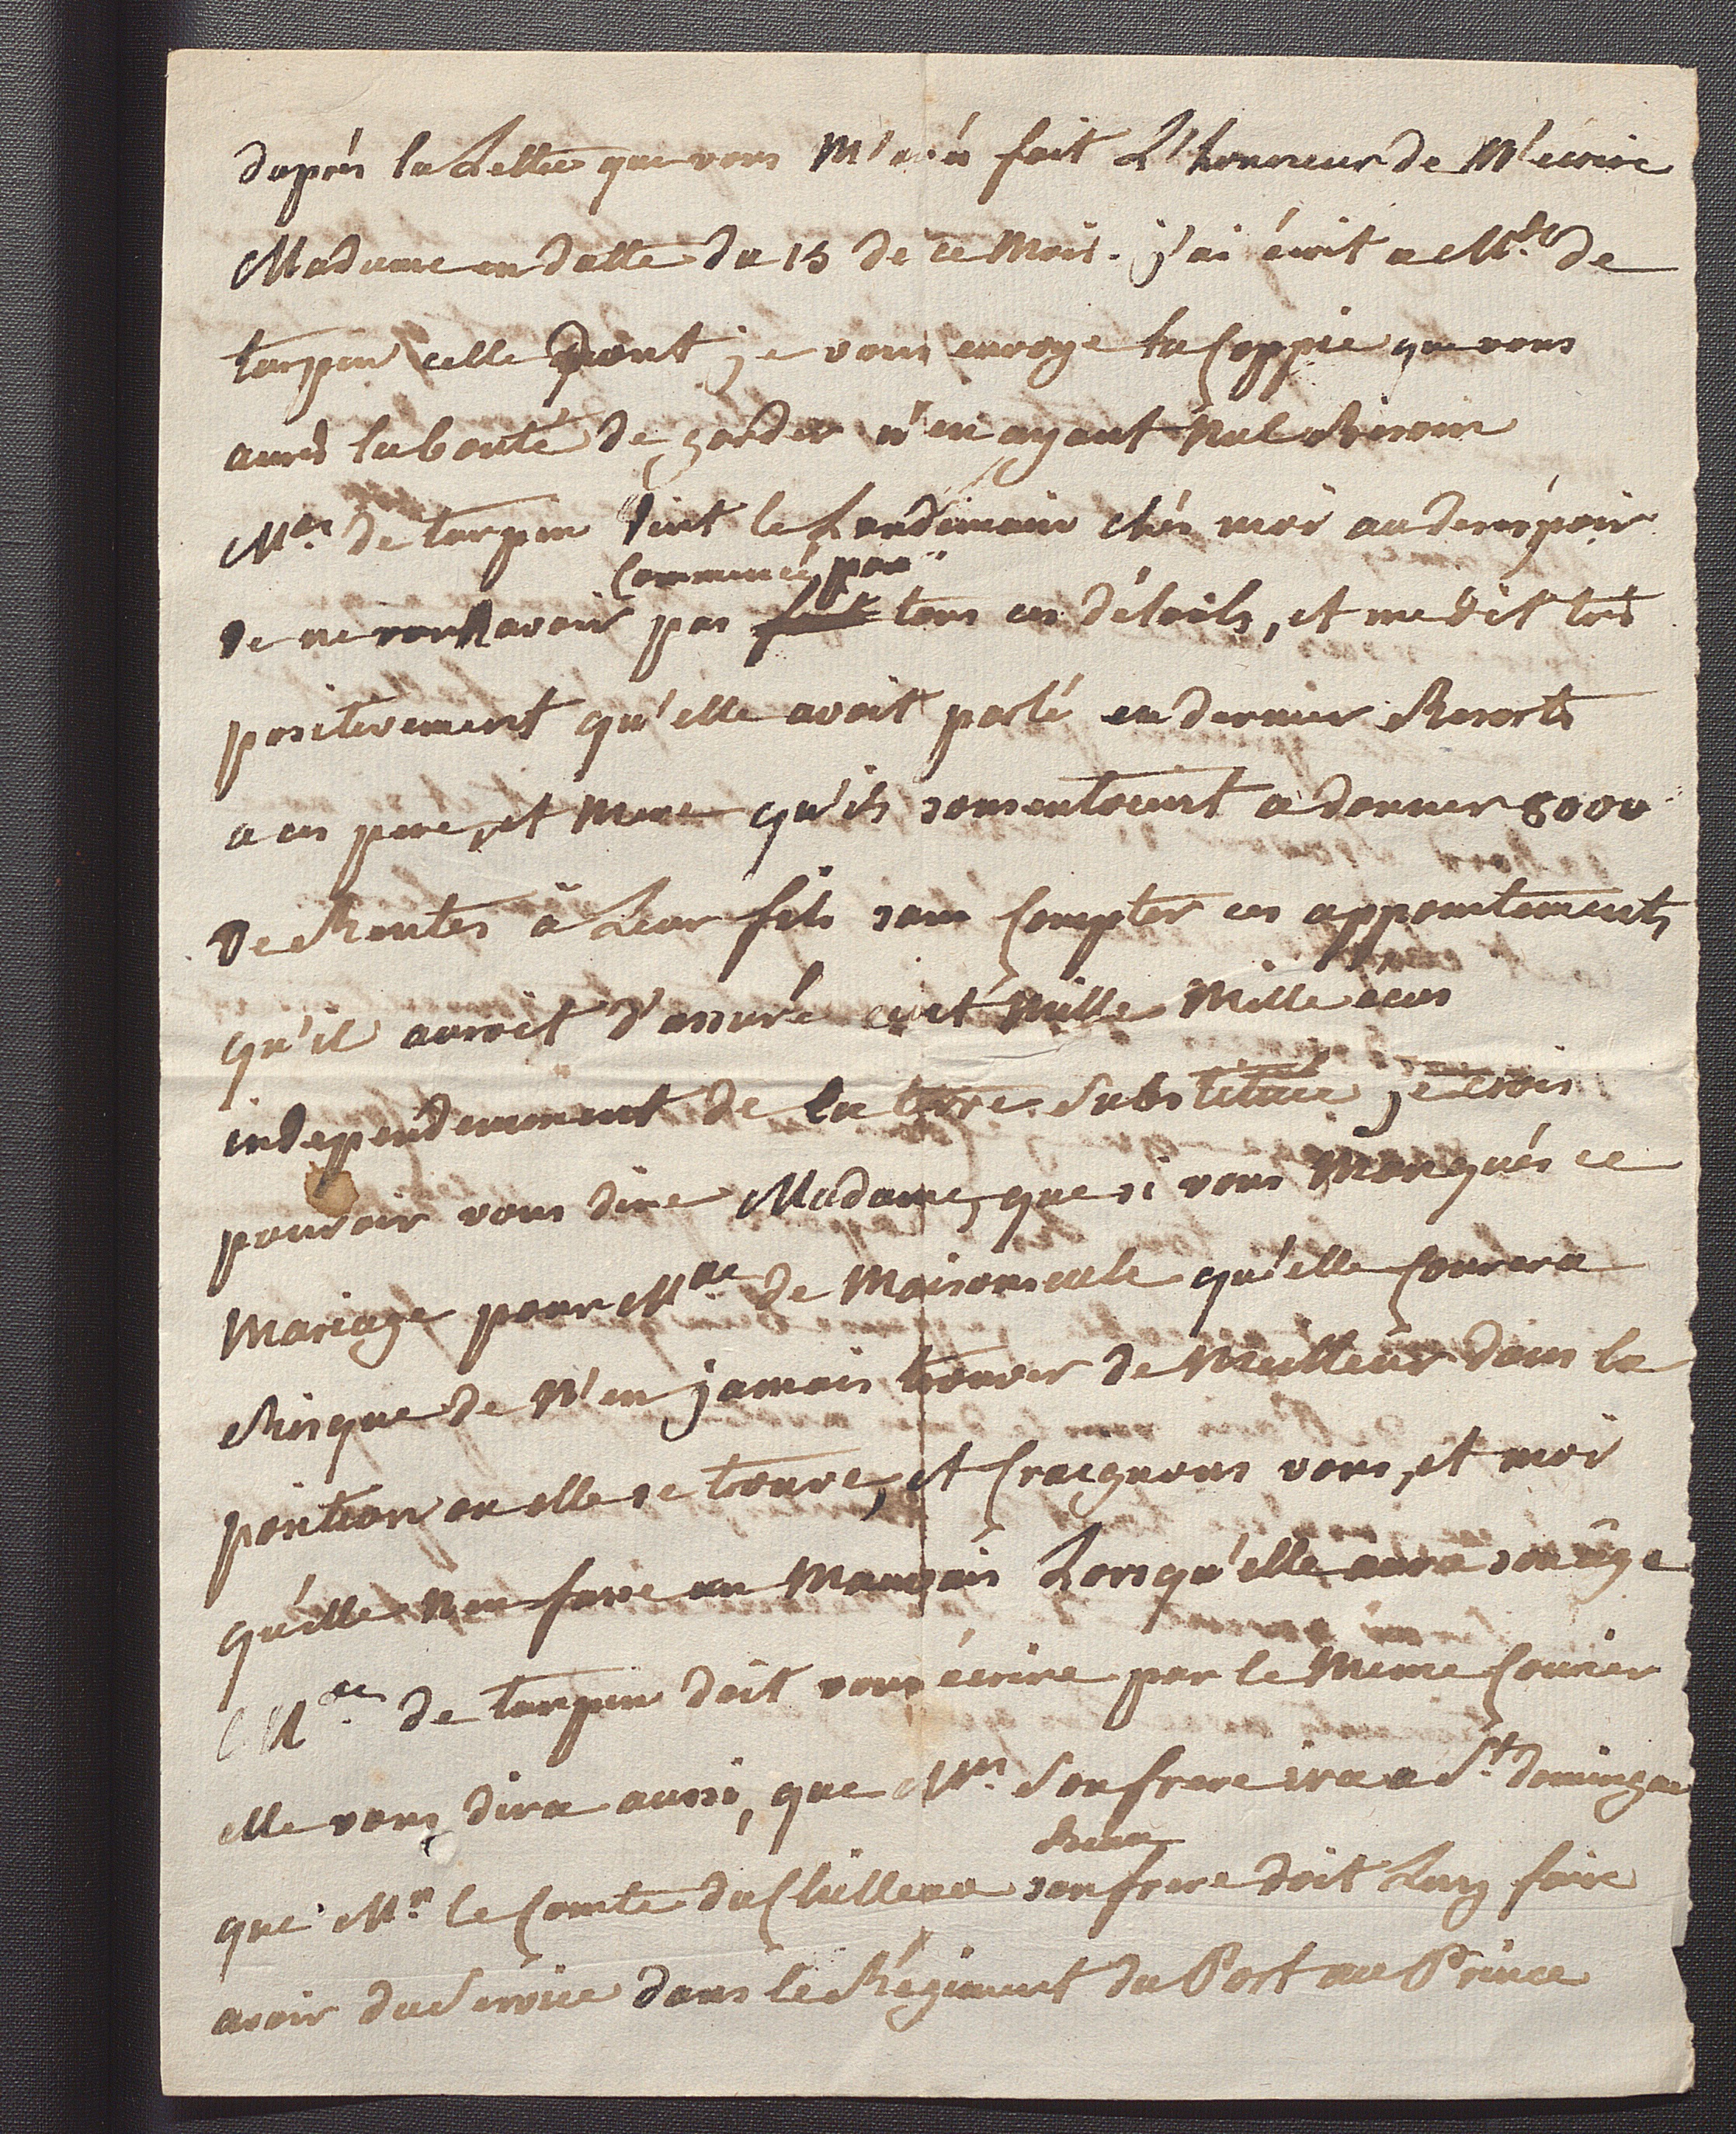 daprés la Lettre que vous M'avés fait L'honneur de M'ecrire
Madame en datte du 15 de ce Mois. j'ai écrit a Mde de
turpin celle dont je vous envoye la Coppie que vous
aurés la bonté de garder n'en ayant Nul Besoin
Mde de turpin Vint le Lendemain chés moi au desespoir
Commencé par
de ne avoir pas fait tous ces détails, et me dit trés
positivement qu'elle avoit parlé en dernier Resorts
a ces pere, et Mere qu'ils consentoient a donner 8000
de Rentes à Leur fils sans Compter ces appointements
qu'il auroit d'assuré cent Mille Mille ecus
independemment de la terre Substituée je crois
pouvoir vous dire Madame, que si vous Manqués ce
Mariage pour Mlle de Maisonseule qu'elle Courera
Risque de N'en jamais trouver de Meilleur dans la
position ou elle se trouve, et Craignons vous, et moi
qu'elle N'en fasse un Mauvais Lorsqu'elle aura son âge
Mde de turpin doit vous écrire par le Meme Courier
elle vous dira aussi, que Mr Son frere ira a St Domingue
Beau
que Mr le Comte du Chilleau son frere doit Luy faire
avoir du Service dans le Régiment du Port au Prince